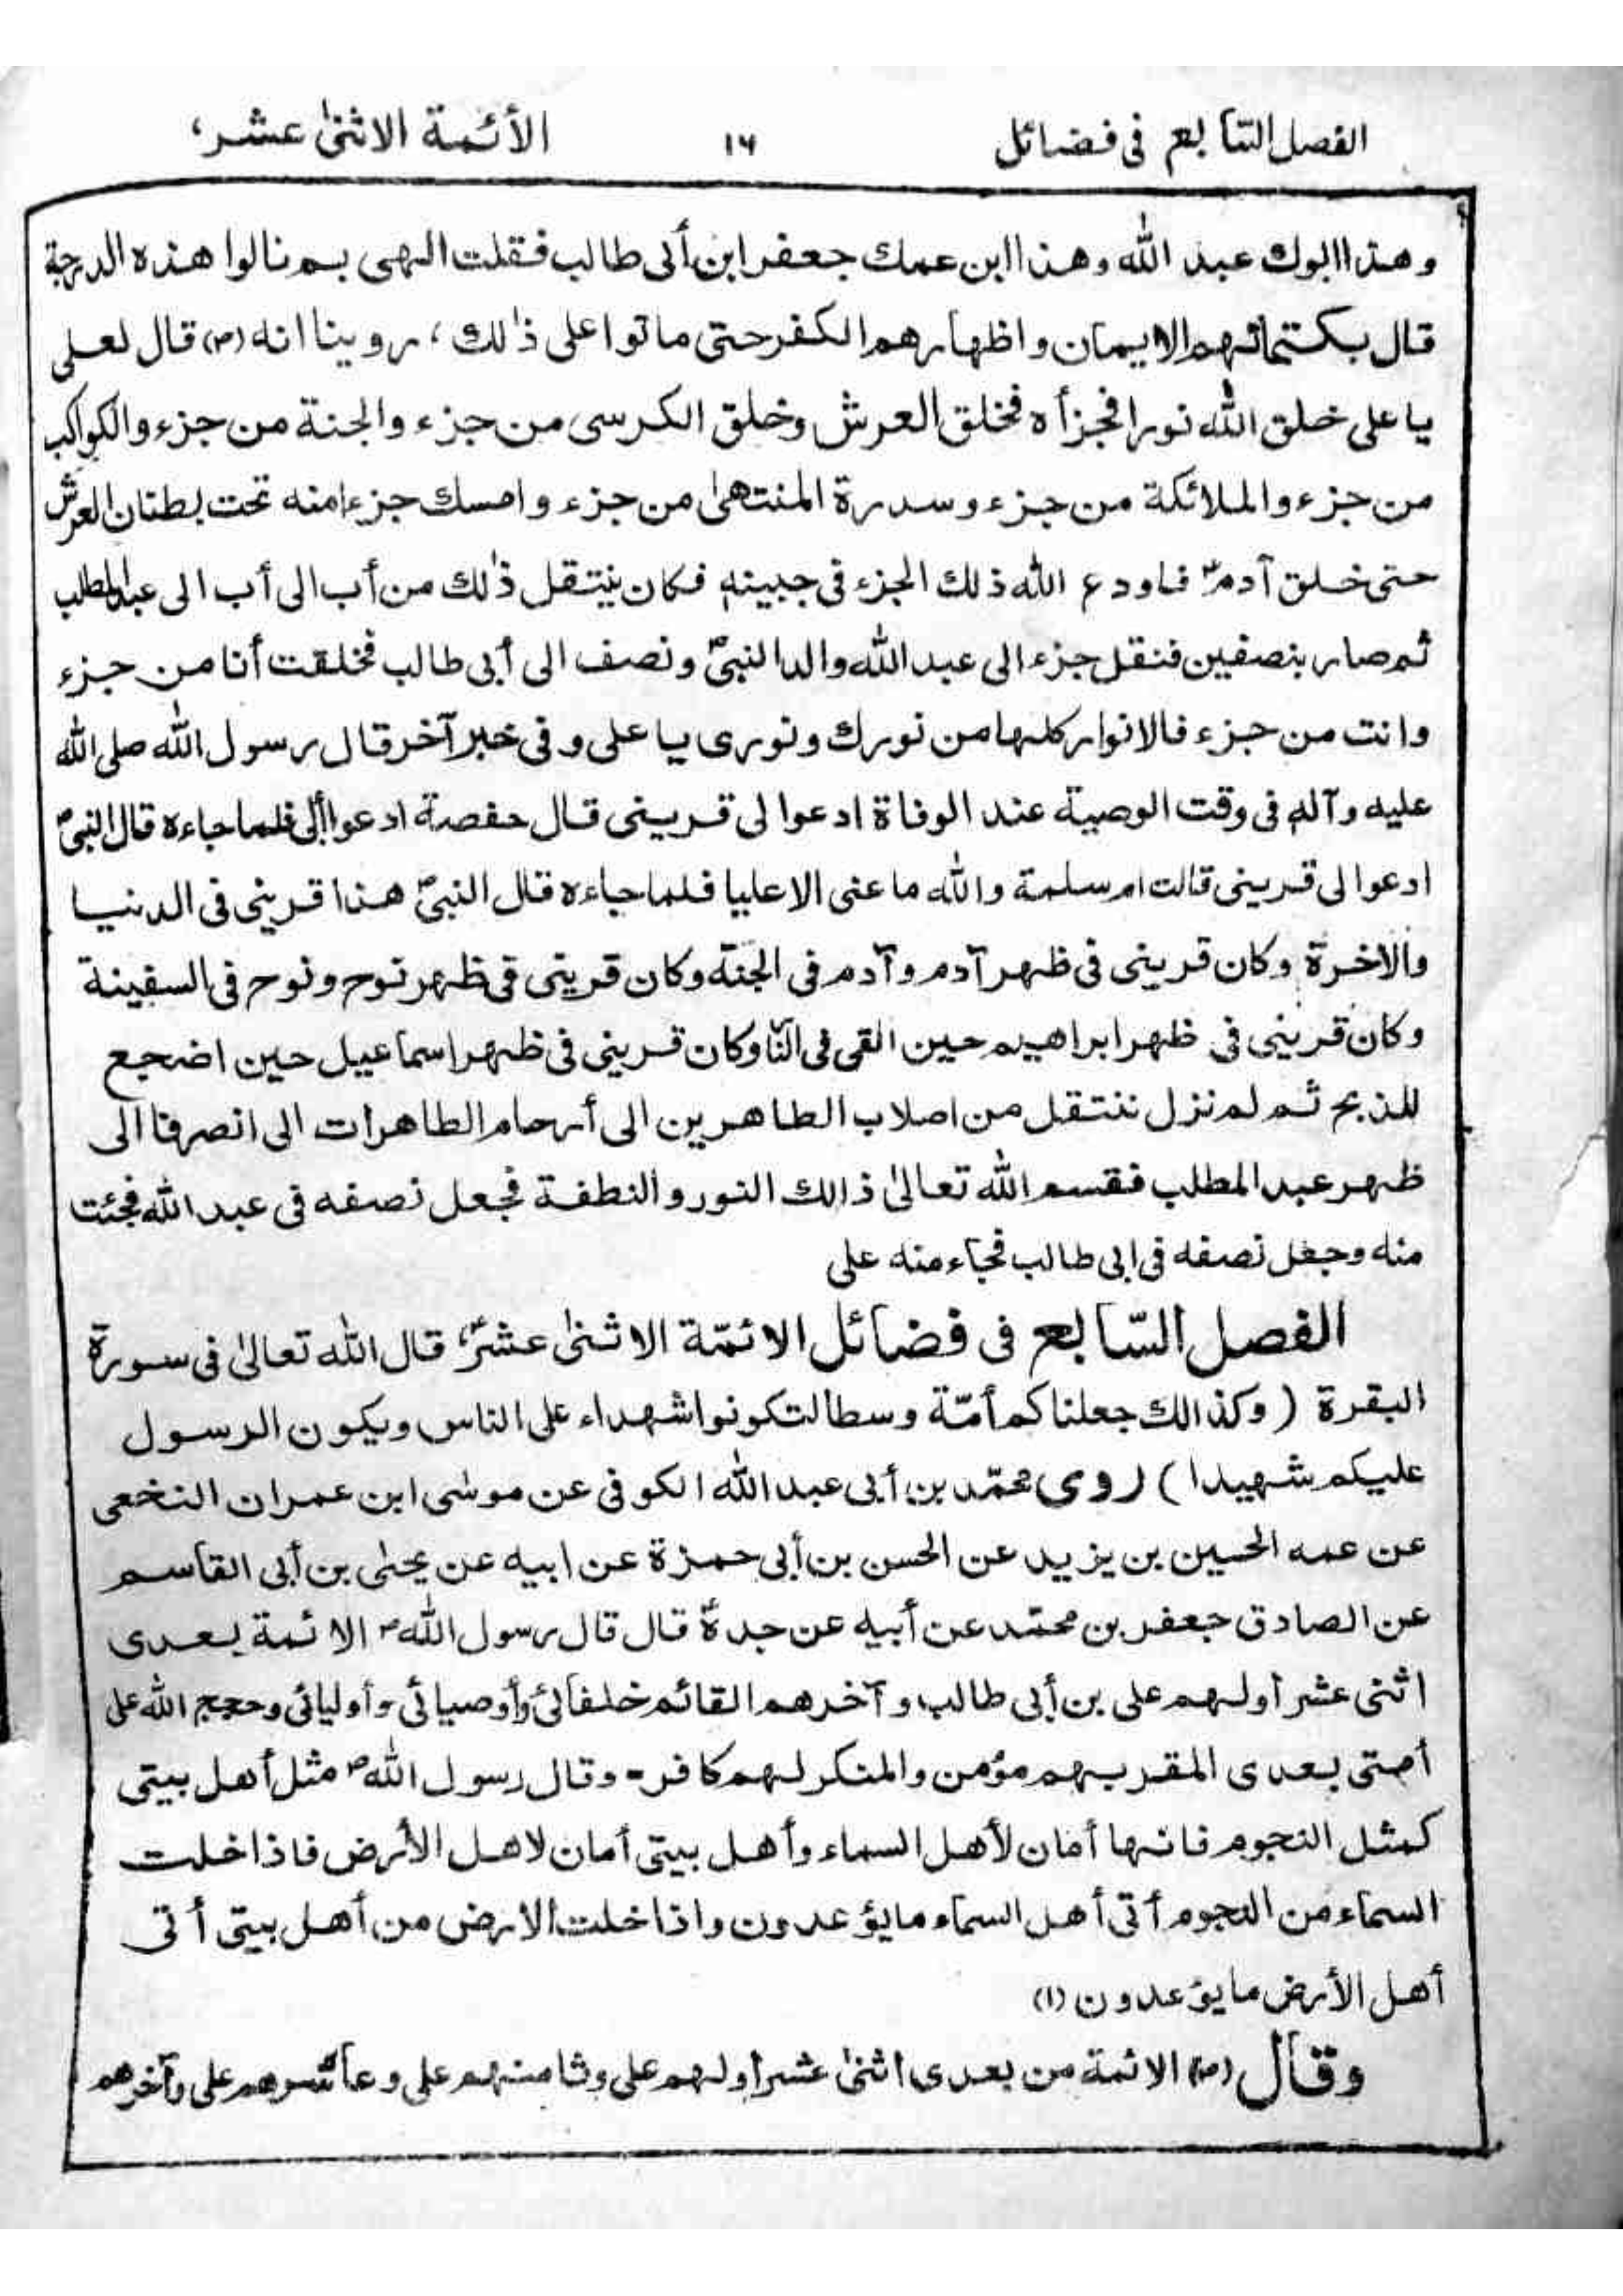 الفصل السّابع فى فضائل ١٦ الأئمة الاثنىٰ عشر،
وهذا ابوك عبد الله وهذا ابن عمك جعفر ابن أبى طالب فقلت الهى بم نالوا هذه الدرجة
قال بكتمانهم الايمان واظهارهم الكفر حتى ماتوا على ذٰلك، روينا انه (ص) قال لعلى
يا على خلق الله نورا فجزأه فخلق العرش وخلق الكرسى من جزء والجنة من جزء والكواكب
من جزء والملائكة من جزء وسدرة المنتهىٰ من جزء وامسك جزءا منه تحت بطنان العرش
حتى خلق آدمؑ فاودع الله ذلك الجزء فى جبينه فكان ينتقل ذٰلك من أب الى أب الى عبد المطلب
ثم صار بنصفين فنقل جزء الى عبد الله والد النبىؐ ونصف الى أبى طالب فخلقت أنا من جزء
وانت من جزء فالانوار كلها من نورك ونورى يا على وفى خبر آخر قال رسول الله صلى الله
عليه وآله فى وقت الوصية عند الوفاة ادعوا لى قرينى قال حفصة ادعوا أبى فلما جاءه قال النبىؐ
ادعوا لى قرينى قالت ام سلمة والله ما عنى الا عليا فلما جاءه قال النبىؐ هذا قرينى فى الدنيا
والاخرة وكان قرينى فى ظهر آدم وآدم فى الجنة وكان قرينى فى ظهر نوح ونوح فى السفينة
وكان قرينى فى ظهر ابراهيم حين القى فى النار وكان قرينى فى ظهر اسماعيل حين اضجع
للذبح ثم لم نزل ننتقل من اصلاب الطاهرين الى أرحام الطاهرات الى انصرفنا الى
ظهر عبد المطلب فقسم الله تعالىٰ ذالك النور والنطفة فجعل نصفه فى عبد الله فجئت
منه وجعل نصفه فى ابى طالب فجاء منه على
الفصل السّابع فى فضائل الائمّة الاثنىٰ عشرؑ، قال الله تعالىٰ فى سورة
البقرة ( وكذالك جعلناكم أمّة وسطا لتكونوا شهداء على الناس ويكون الرسول
عليكم شهيدا ) روى محمّد بن أبى عبد الله الكوفى عن موسٰى ابن عمران النخعى
عن عمه الحسين بن يزيد عن الحسن بن أبى حمزة عن ابيه عن يحيٰى بن أبى القاسم
عن الصادق جعفر بن محمّد عن أبيه عن جدهؑ قال قال رسول اللهؐ الائمة بعدى
اثنى عشر أولهم على بن أبى طالب وآخرهم القائم خلفائى وأوصيائى وأوليائى وحجج الله على
أمتى بعدى المقر بهم مؤمن والمنكر لهم كافر - وقال رسول اللهؐ مثل أهل بيتى
كمثل النجوم فانها أمان لأهل السماء وأهل بيتى أمان لاهل الأرض فاذا خلت
السماء من النجوم أتى أهل السماء ما يؤعدون واذا خلت الارض من أهل بيتى أتى
أهل الأرض ما يؤعدون (١)
وقال (ص) الائمة من بعدى اثنىٰ عشر أولهم على وثامنهم على وعاشرهم على وآخرهم